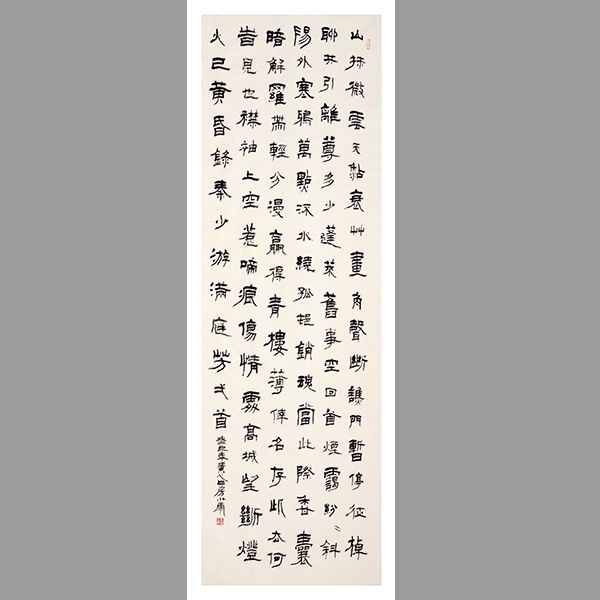 山抹微雲天黏衰艸畫角聲斷譙門暫停征棹
聊共引離尊多少蓬萊舊事空回首煙靄紛〻斜
陽外寒鴉萬點流水繞孤邨銷魂當此際香囊
暗解羅帶輕分漫贏得青樓薄倖名存此去何
旹見也襟袖上空惹啼痕傷情處高城望斷燈
火已黃昏錄秦少游滿庭芳弌首
癸巳年